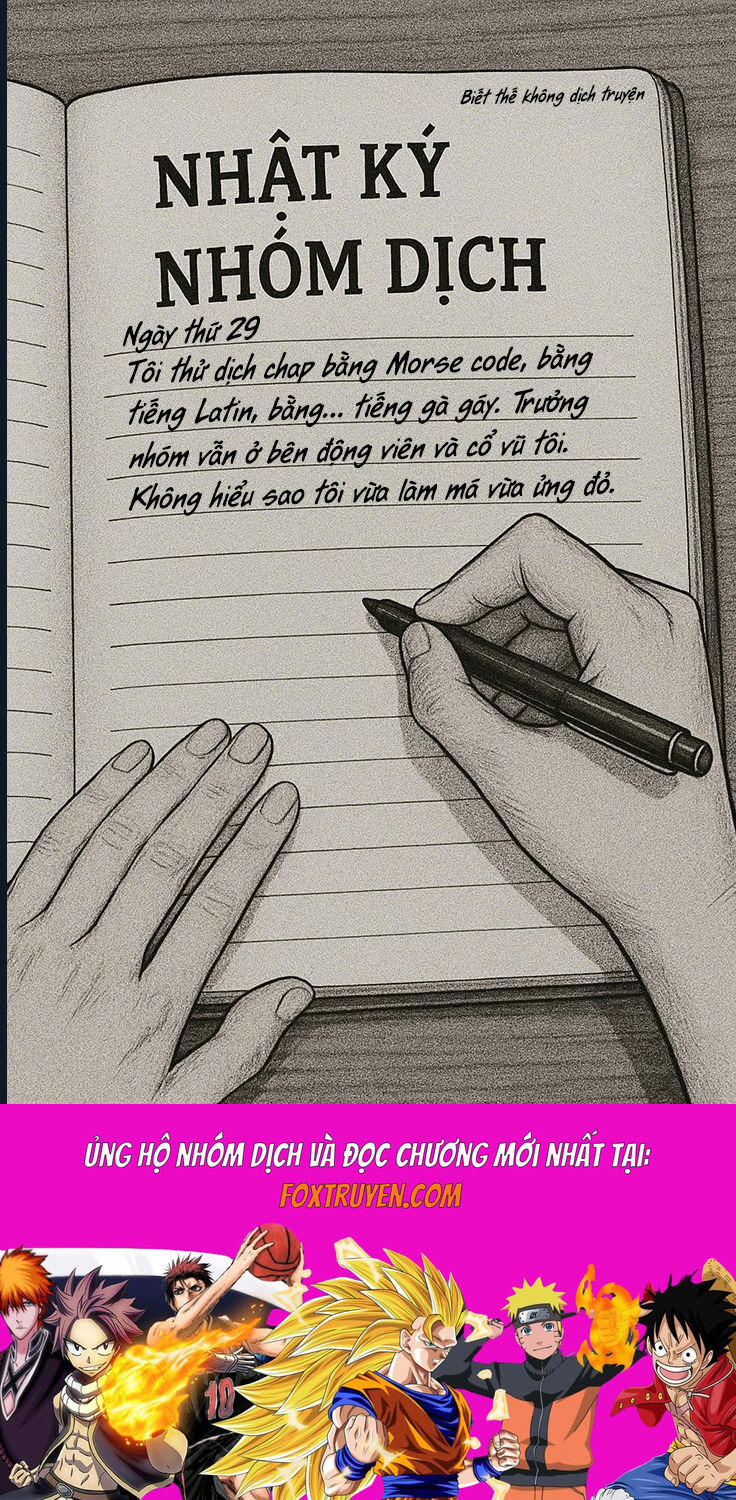 Biết thế không dịch truyện
NHẬT KÝ
NHÓM DỊCH
Ngày thứ 29
Tôi thử dịch chap bằng Morse code, bằng
tiếng Latin, bằng... tiếng gà gáy. Trưởng
nhóm vẫn ở bên động viên và cổ vũ tôi.
Không hiểu sao tôi vừa làm má vừa ửng đỏ.
ỦNG HỘ NHÓM DỊCH VÀ ĐỌC CHƯƠNG MỚI NHẤT TẠI:
FOXTRUYEN.COM
10